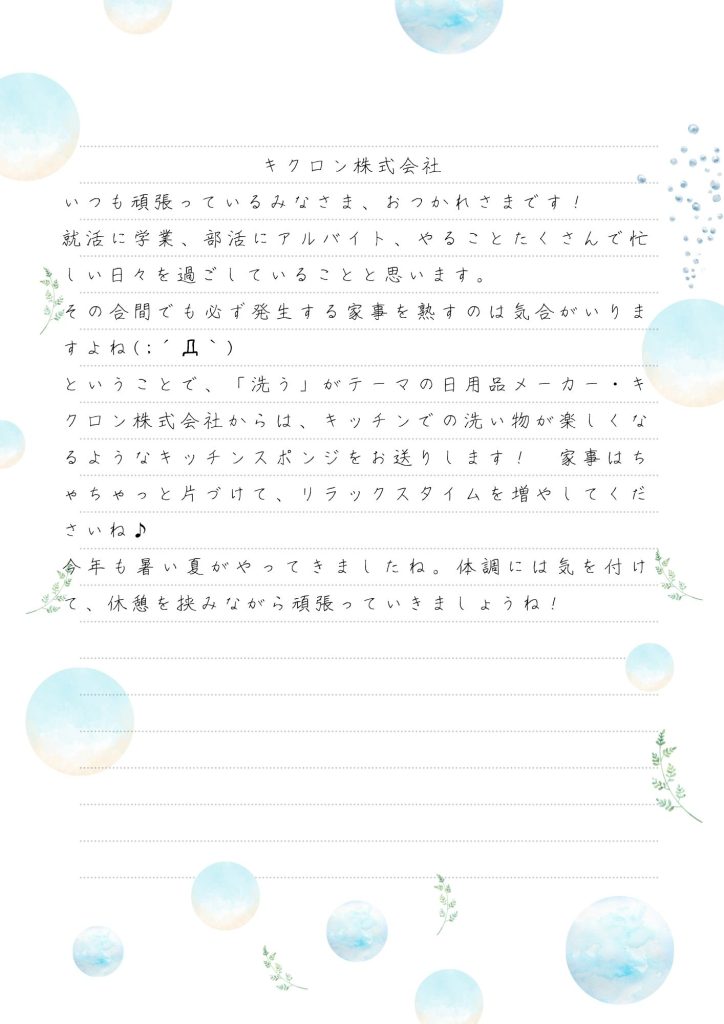 キクロン株式会社
いつも頑張っているみなさま、おつかれさまです！
就活に学業、部活にアルバイト、やることたくさんで忙
しい日々を過ごしていることと思います。
その合間でも必ず発生する家事を熟すのは気合がいりま
すよね(；´Д｀)
ということで、「洗う」がテーマの日用品メーカー・キ
クロン株式会社からは、キッチンでの洗い物が楽しくな
るようなキッチンスポンジをお送りします！　家事はち
ゃちゃっと片づけて、リラックスタイムを増やしてくだ
さいね♪
今年も暑い夏がやってきましたね。体調には気を付け
て、休憩を挟みながら頑張っていきましょうね！